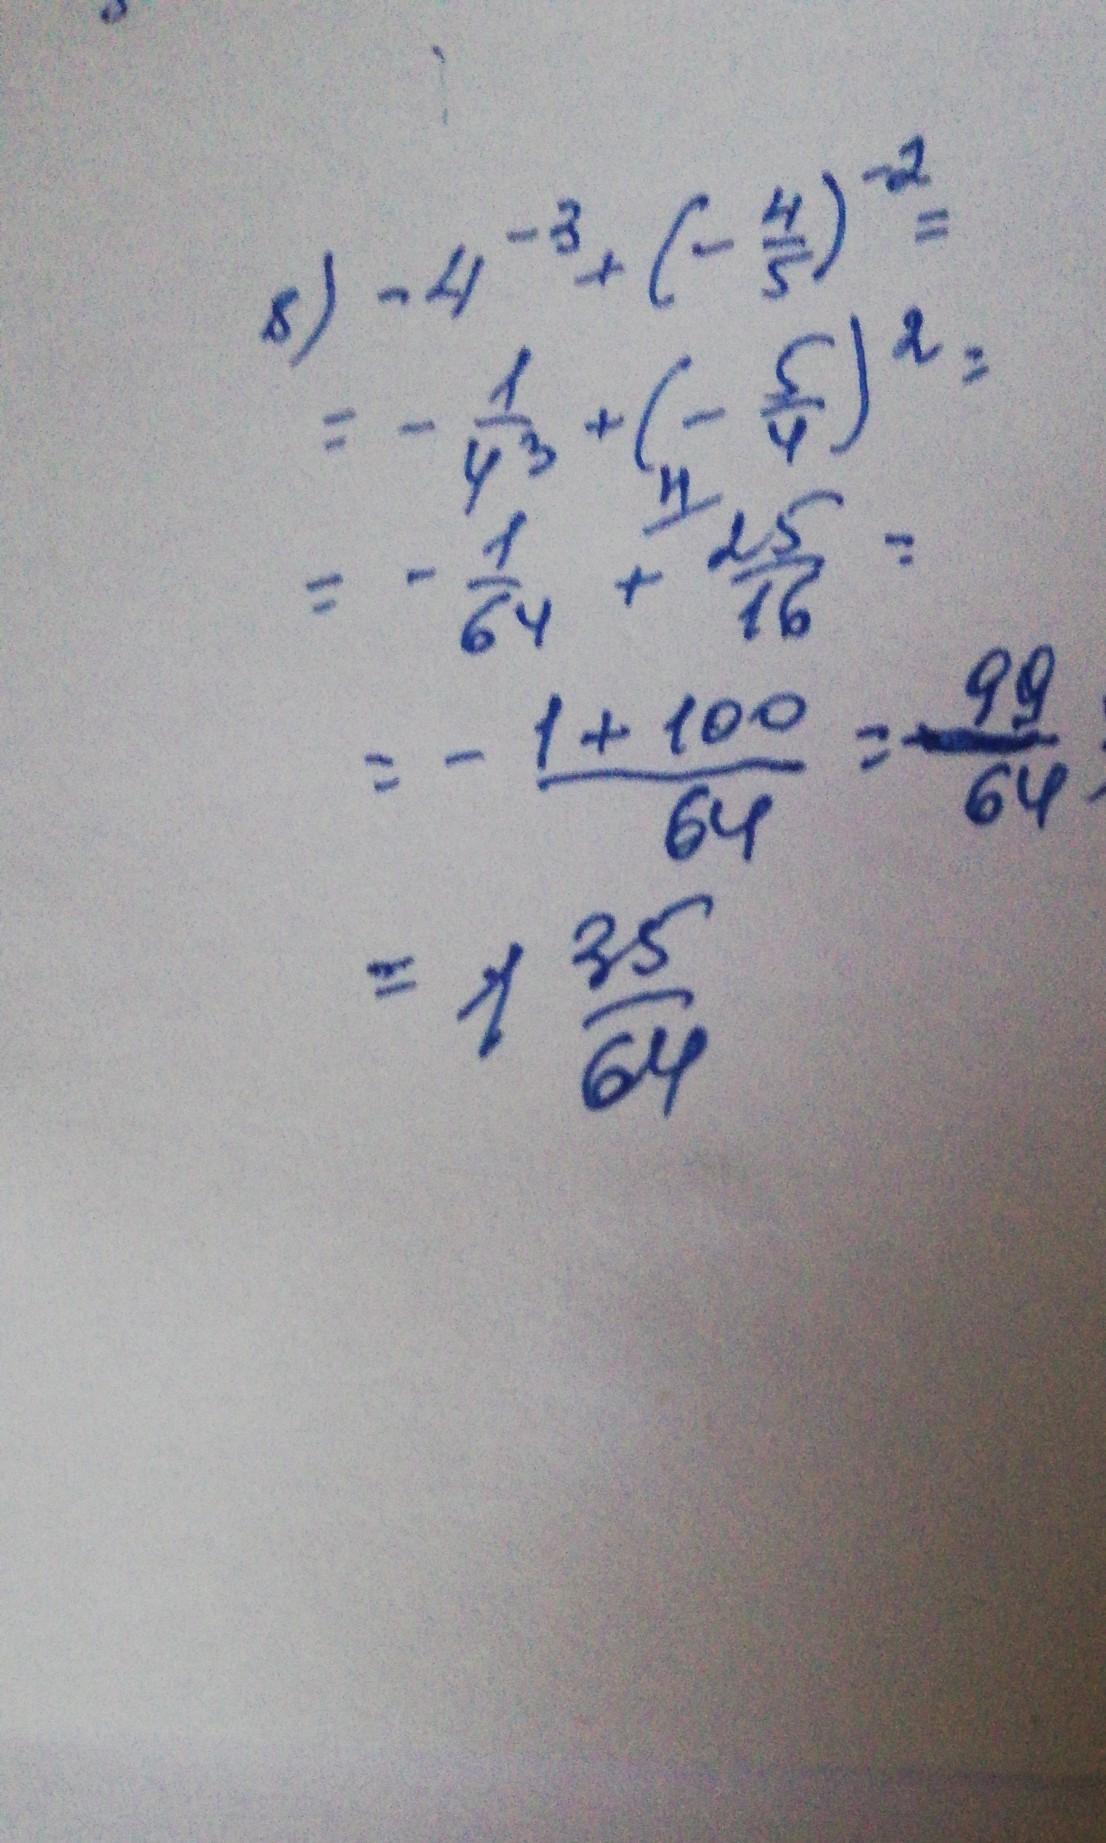 8) -4^-3 + (- 4/5)^-2 =
= - 1/4^3 + (- 5/4)^2 =
= - 1/64 + 4/ 25/16 =
= - 1 + 100/64 = 99/64 =
= 1 35/64